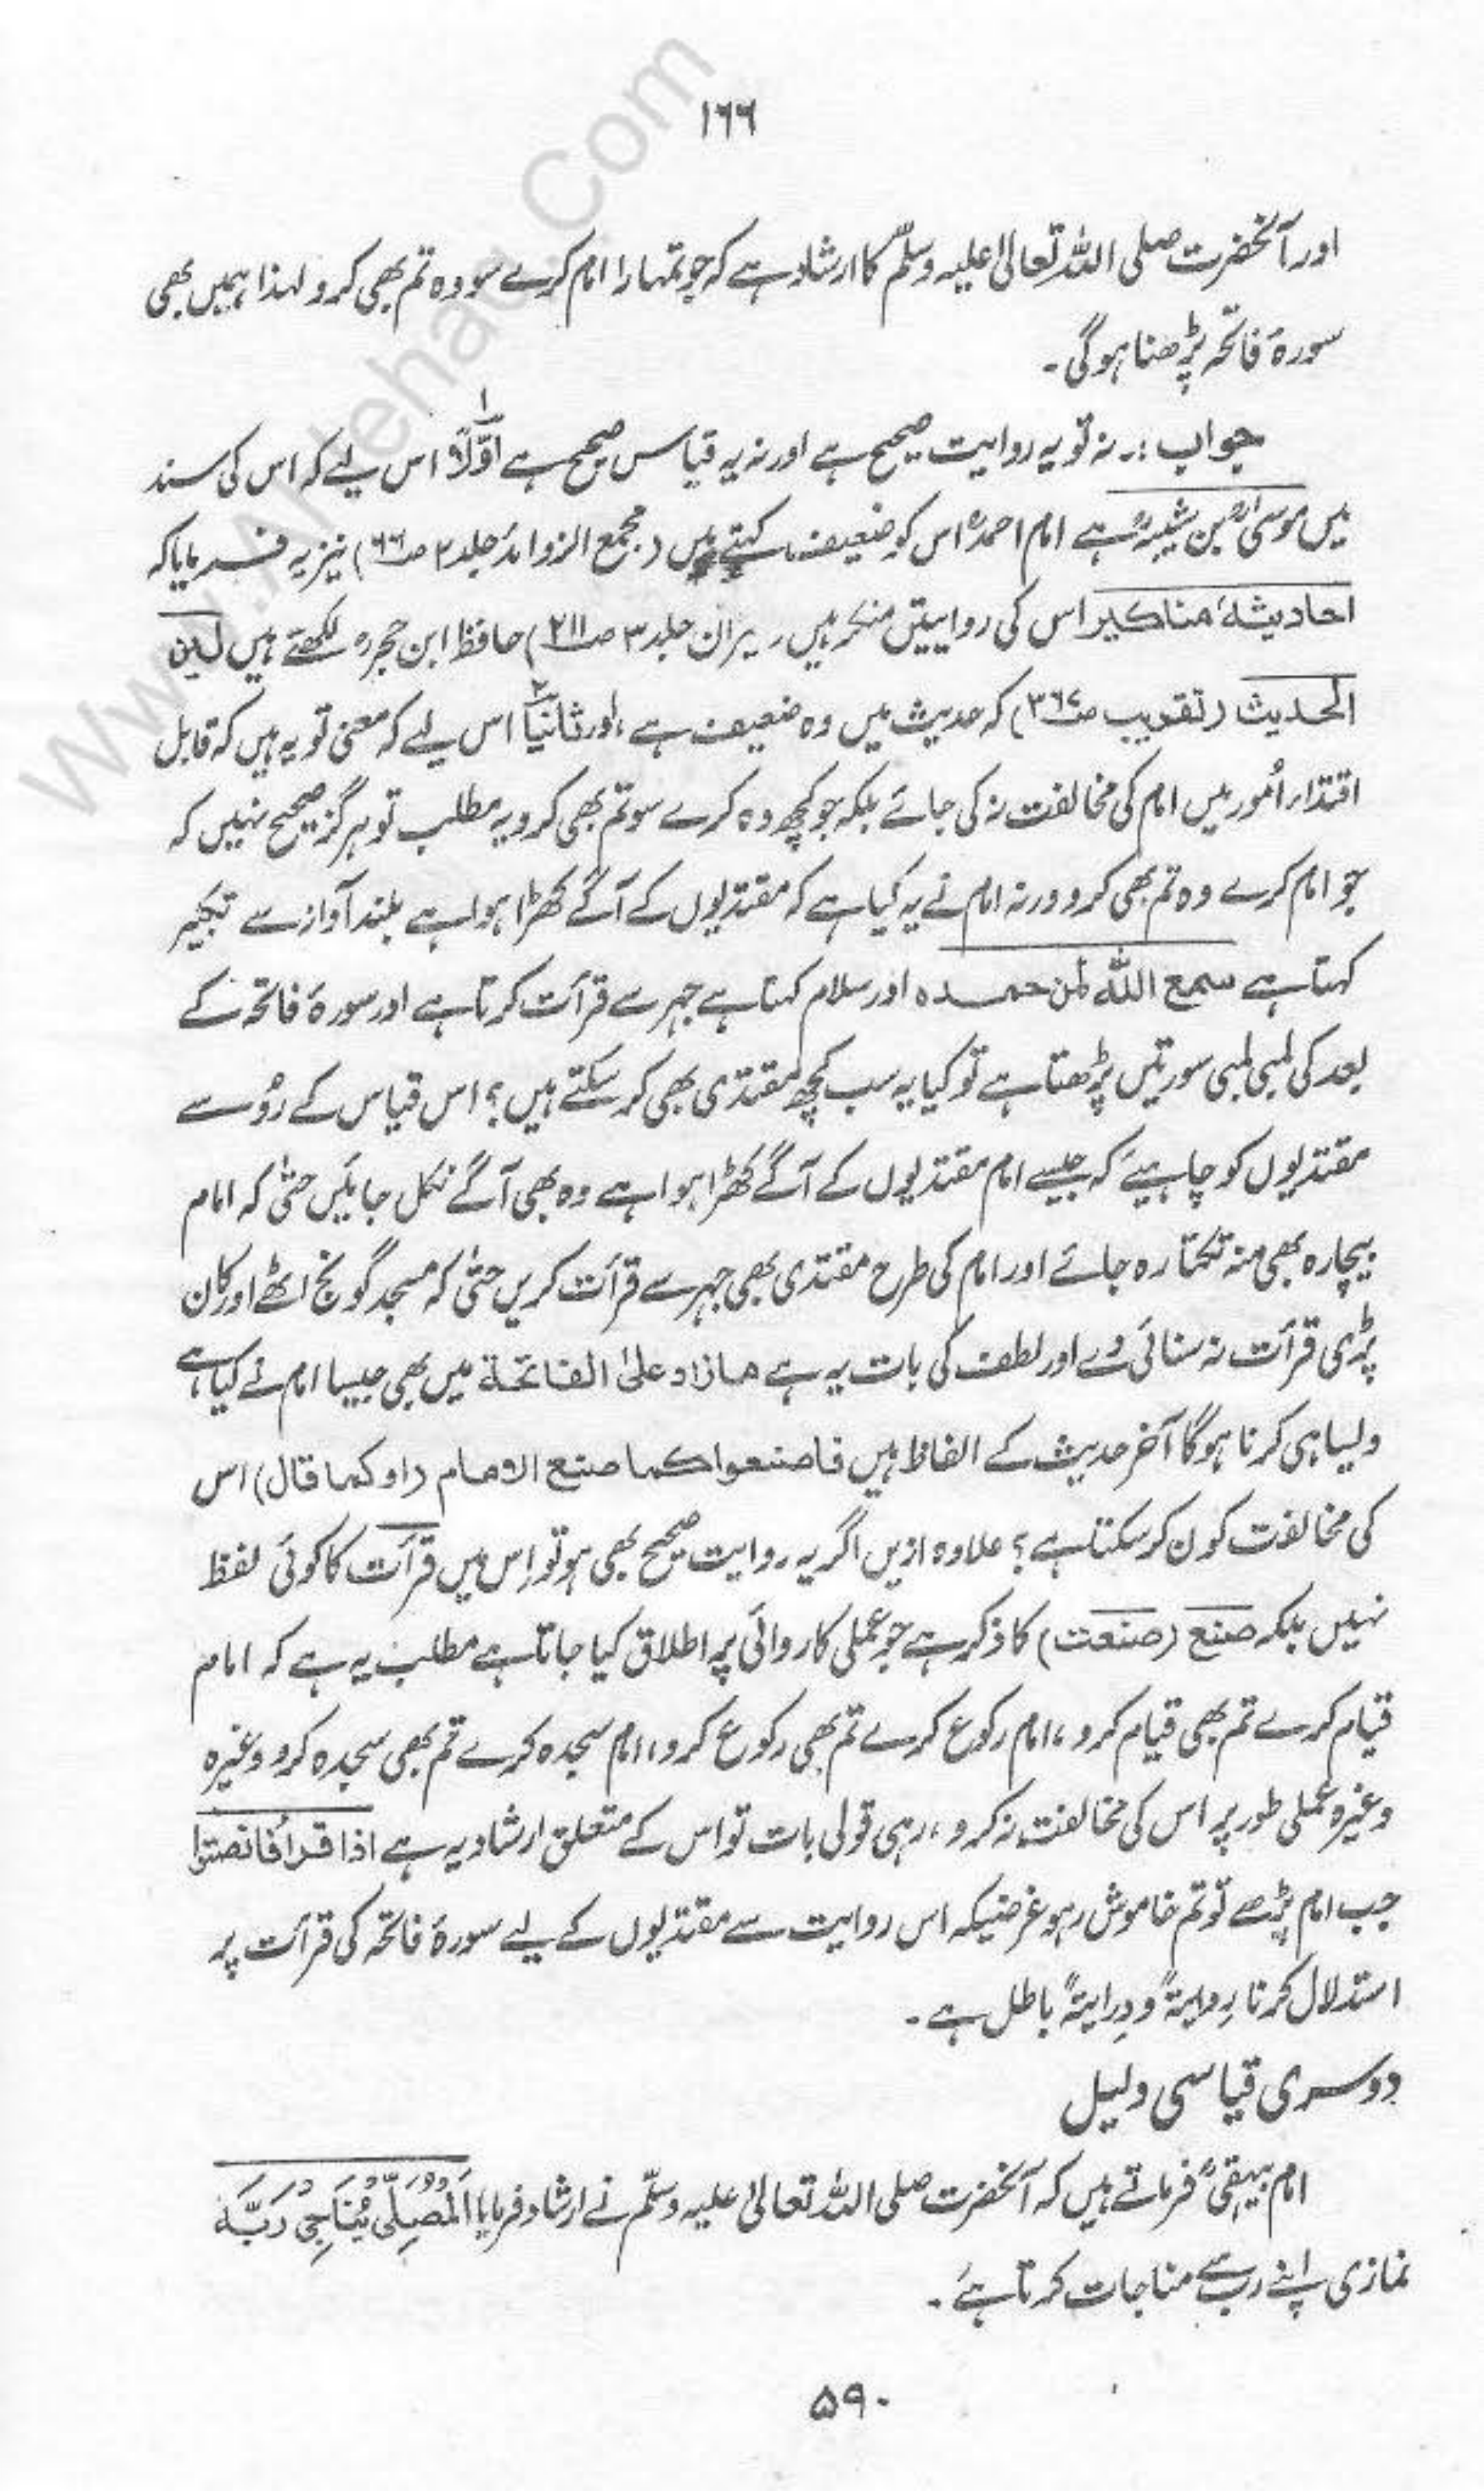 ۱۶۶
اور آنحضرت صلی اللہ تعالیٰ علیہ وسلّم کا ارشاد ہے کہ جو تمہارا امام کرے سو وہ تم بھی کرو لہذا ہمیں بھی
سورۂ فاتحہ پڑھنا ہوگی۔
جواب :۔ نہ تو یہ روایت صحیح ہے اور نہ یہ قیاس صحیح ہے اوّلًا اس لیے کہ اس کی سند
میں موسیٰؒ بن شیبہؒ ہے امام احمدؒ اس کو ضعیف کہتے ہیں (مجمع الزوائد جلد ۲ ص۶۶) نیز یہ فرمایا کہ
احادیثہٗ مناکیر اس کی روایتیں منکر ہیں (میزان جلد ۳ ص۲۱۱) حافظ ابن حجرؒ لکھتے ہیں لین
الحدیث (تقریب ص۳۶۷) کہ حدیث میں وہ ضعیف ہے، اور ثانیًا اس لیے کہ معنی تو یہ ہیں کہ قابل
اقتدار اُمور میں امام کی مخالفت نہ کی جائے بلکہ جو کچھ وہ کرے سو تم بھی کرو یہ مطلب تو ہرگز صحیح نہیں کہ
جو امام کرے وہ تم بھی کرو ورنہ امام نے یہ کیا ہے کہ مقتدیوں کے آگے کھڑا ہوا ہے بلند آواز سے تکبیر
کہتا ہے سمع اللہ لمن حمدہ اور سلام کہتا ہے جہر سے قرأت کرتا ہے اور سورۂ فاتحہ کے
بعد کی لمبی لمبی سورتیں پڑھتا ہے تو کیا یہ سب کچھ مقتدی بھی کر سکتے ہیں؟ اس قیاس کے رُو سے
مقتدیوں کو چاہیئے کہ جیسے امام مقتدیوں کے آگے کھڑا ہوا ہے وہ بھی آگے نکل جائیں حتیٰ کہ امام
بیچارہ بھی منہ تکتا رہ جائے اور امام کی طرح مقتدی بھی جہر سے قرأت کریں حتیٰ کہ مسجد گونج اٹھے اور کان
پڑی قرأت نہ سنائی دے اور لطف کی بات یہ ہے مازاد علیٰ الفاتحۃ میں بھی جیسا امام نے کیا ہے
ویسا ہی کرنا ہوگا آخر حدیث کے الفاظ ہیں فاصنعوا کما صنع الامام (او کما قال) اس
کی مخالفت کون کر سکتا ہے؟ علاوہ ازیں اگر یہ روایت صحیح بھی ہو تو اِس میں قرأت کا کوئی لفظ
نہیں بلکہ صنع (صنعت) کا ذکر ہے جو عملی کاروائی پر اطلاق کیا جاتا ہے مطلب یہ ہے کہ امام
قیام کرے تم بھی قیام کرو، امام رکوع کرے تم بھی رکوع کرو، امام سجدہ کرے تم بھی سجدہ کرو وغیرہ
وغیرہ عملی طور پر اس کی مخالفت نہ کرو، رہی قولی بات تو اس کے متعلق ارشاد یہ ہے اذا قرأ فانصتوا
جب امام پڑھے تو تم خاموش رہو غرضیکہ اس روایت سے مقتدیوں کے لیے سورۂ فاتحہ کی قرأت پر
استدلال کرنا رِوایۃً و دِرایۃً باطل ہے۔
دوسری قیاسی دلیل
امام بیہقیؒ فرماتے ہیں کہ آنحضرت صلی اللہ تعالیٰ علیہ وسلّم نے ارشاد فرمایا اَلْمُصَلِّیْ یُنَاجِیْ رَبَّہٗ
نمازی اپنے رب سے مناجات کرتا ہے۔
۵۹۰